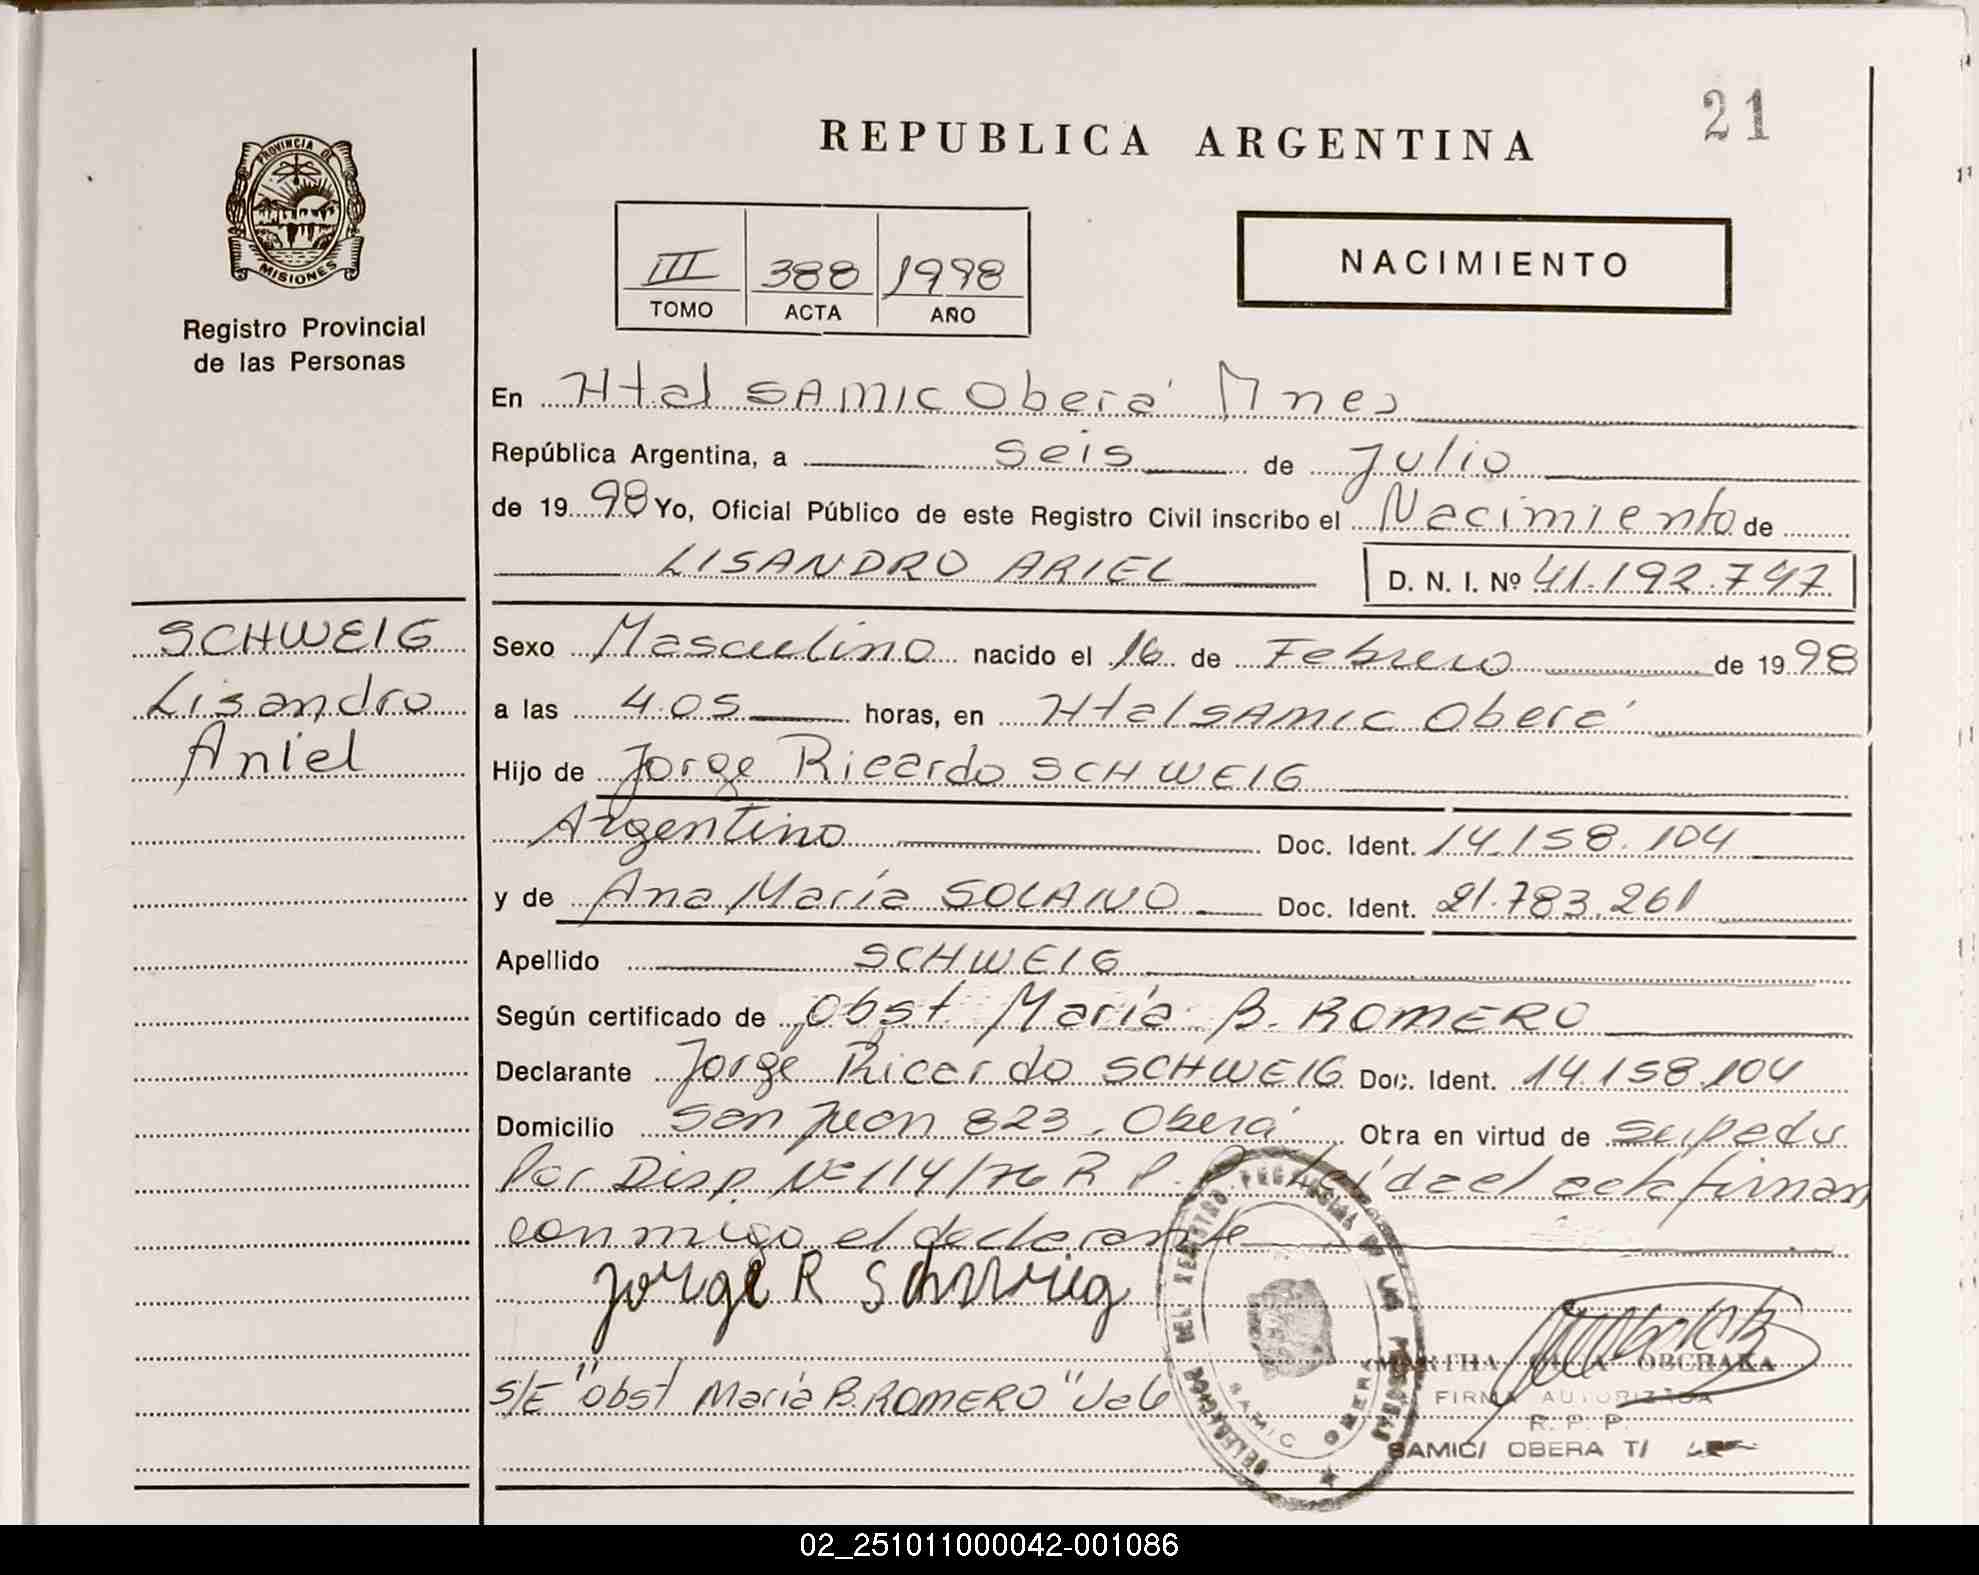 21
REPUBLICA ARGENTINA
PROVINCIA DE
MISIONES
Registro Provincial
de las Personas
III 388 1998
TOMO ACTA AÑO
NACIMIENTO
En Htal SAMIC Oberá Mnes
República Argentina, a seis de Julio
de 1998 Yo, Oficial Público de este Registro Civil inscribo el Nacimiento de
LISANDRO ARIEL D. N. I. Nº 41.192.747
SCHWEIG
Lisandro
Ariel
Sexo Masculino nacido el 16 de Febrero de 1998
a las 4.05 horas, en Htal SAMIC Oberá
Hijo de Jorge Ricardo SCHWEIG
Argentino Doc. Ident. 14.158.104
y de Ana María SOLANO Doc. Ident. 21.783.261
Apellido SCHWEIG
Según certificado de Obst María B. ROMERO
Declarante Jorge Ricardo SCHWEIG Doc. Ident. 14.158.104
Domicilio San Juan 823, Oberá Obra en virtud de
Por Disp. Nº 114/76 R. P. P. Leída el acta firman
conmigo el declarante
Jorge R Schweig
S/E "Obst María B. ROMERO" Vale
DELEGACION DEL REGISTRO PROVINCIAL DE LAS PERSONAS
SAMIC OBERA
FIRMA AUTORIZADA
R. P. P.
SAMIC/ OBERA T/
02_251011000042-001086